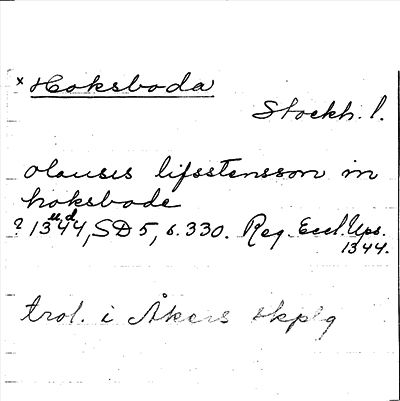 x Hoksboda
Stockh. l.
olauus lifsstensson in
hoksbode
u.d.
? 1344, SD 5, s. 330. Reg. Eccl. Ups.
1344.
trol. i Åkers skplg